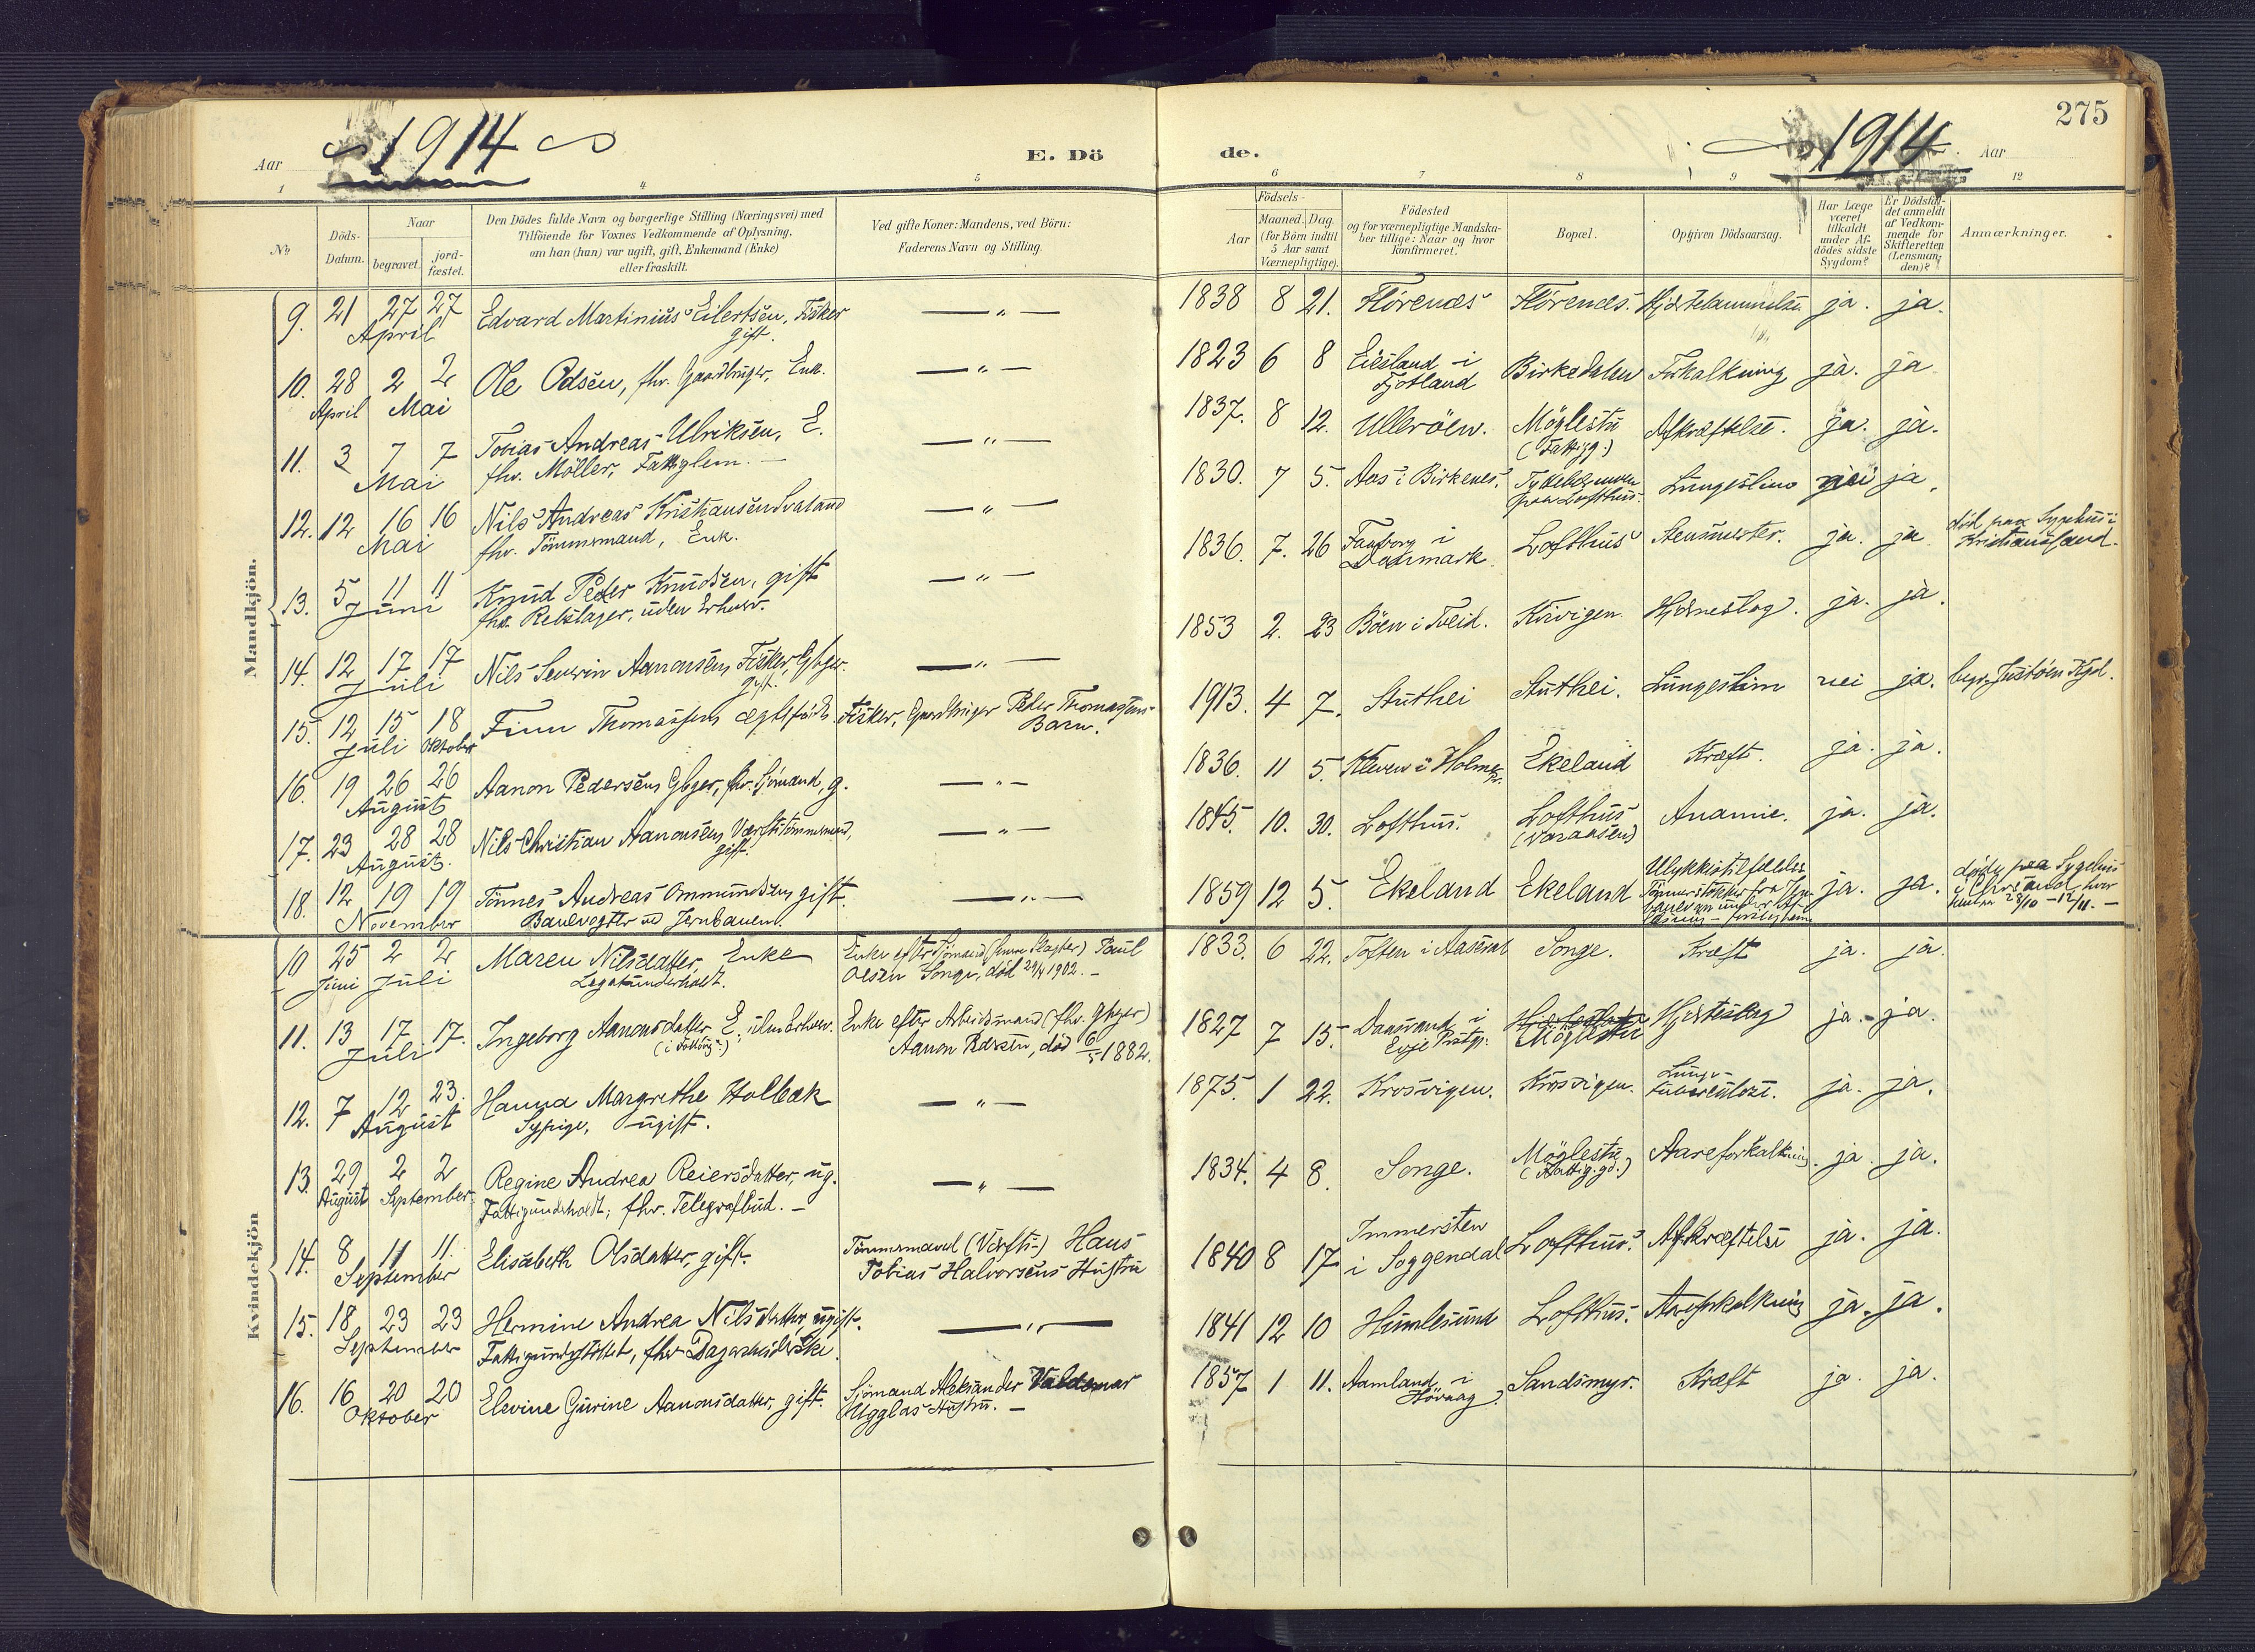 275
Aar 1914 E. Dö
de. 1914 Aar
1 4 5 6 7 8 9 12
No
Döds-Datum.
Naar
begravet.
jord-fæstet.
Den Dödes fulde Navn og borgerlige Stilling (Næringsvei) med
Tilföiende for Voxnes Vedkommende af Oplysning,
om han (hun) var ugift, gift, Enkemand (Enke)
eller fraskilt.
Ved gifte Koner: Mandens, ved Börn:
Faderens Navn og Stilling.
Födsels-
Aar
Maaned. Dag.
(for Börn indtil
5 Aar samt
Værnepligtige).
Födested
og for værnepligtige Mandska-
ber tillige: Naar og hvor
konfirmeret.
Bopæl.
Opgiven Dödsaarsag.
Har Læge
været
tilkaldt
under Af-
dödes sidste
Sygdom?
Er Dödsfal-
det anmeldt
af Vedkom-
mende for
Skifteretten
(Lensman-
den)?
Anmærkninger.
Mandkjön.
9. 21 27 27 Edvard Martinius Eilertsen, Fisker — " — 1838 8 21. Flörenæs Flörenæs. Hjertelammelse ja. ja.
April gift.
10. 28 2 2 Ole Odsen, fhv. Gaardbruger, Enk. — " — 1823 6 8 Eiesland i Birkedalen Forkalkning ja. ja
April Mai Fjotland
11. 3 7 7 Tobias Andreas Ulriksen, E. — " — 1837. 8 12. Ulleröen. Möglestu Afkræftelse. ja. ja.
Mai fhv. Möller, Fattiglem. — (Fattigg.)
12. 12 16 16 Nils Andreas Kristiansen Svaland — " — 1830. 7 5. Aas i Birkenes. Lungeslim nei ja.
Mai fhv. Tömmermand, Enk. Lofthus.
13. 5 11 11 Knud Peder Knudsen, gift — " — 1836. 7. 26 Faaborg i Lofthus ja. ja död paa Sygehus i
Juni fhv. Rebslager, uden Erhverv. Danmark Kristiansand.
14. 12 17 17 Nils Severin Aanonsen, Fisker, Gbger. — " — 1853 2. 23 Böen i Tveid. Kivigen. Hjerneslag. ja. ja.
Juli gift.
15. 12 15 18 Finn Thomassen ægtefödt. Fisker, Gaardbruger Peder Thomassens 1913. 4 7. Stuthei Stuthei. Lungeslim nei ja. begr. Justöen Kgd.
Juli Oktober Barn.
16. 19 26 26 Aanon Pedersen, Gbger, fhv. Sjömand, g. — " — 1836. 11 5. Kleven i Holme Ekeland Kræft. ja. ja.
August
17. 23 28 28 Nils Christian Aanonsen, Værftstömmermand, — " — 1845. 10. 30. Lofthus. Lofthus Anæmie. ja. ja.
August. gift. (Varaasen)
18. 12 19 19 Tönnes Andreas Ommundsen, gift. — " — 1859 12 5. Ekeland Ekeland Ulykkestilfælde: ja. ja. döde paa Sygehus
November Banevogter ved Jernbanen. 28/10 – 12/11. —
Kvindekjön
10 25 2 2 Maren Nilsdatter, Enke Enke efter Sjömand Paul 1833. 6 22. Toften i Aaseral Songe. Kræft ja. ja.
Juni Juli Legatunderholdt. Olsen Songe, död 29/4 1902. —
11. 13 17 17. Ingeborg Aanonsdatter, E., uden Erhverv. Enke efter Arbeidsmand (fhv. Gbger) 1827 7 15. Daasvand i Hjerteslag ja. ja.
Juli (i Fattigg.) Aanon Pedersen, död 6/5 1882. Evje Prstgj. Möglestu
12. 7 12 23. Hanna Margrethe Holbæk — " — 1875. 1 22. Krosvigen. Krosvigen. Lunge- ja. ja.
August Sypige, ugift. tuberculose.
13. 29 2 2 Regine Andrea Reiersdatter, ug. — " — 1834. 4 8. Songe. Möglestu Aareforkalkning. ja. ja.
August September. Fattigunderholdt; fhv. Telegrafbud. — (Fattig.gd.)
14. 8 11 11. Elisabeth Olsdatter, gift. Tömmermand (Værfts-) Hans 1840 8 17 Immersten Lofthus. Afkræftelse ja. ja.
September Tobias Halvorsens Hustru i Soggendal
15. 18 23 23 Hermine Andrea Nilsdatter, ugift. — " — 1841 12 10 Humlesund Lofthus. Aareforkalkning ja. ja.
September Fattigunderstöttet, fhv. Dagarbeiderske.
16. 16 20 20 Elevine Gurine Aanonsdatter, gift. Sjömand Aleksander Valdemar 1857 1 11. Aamland i Sandsmyr. Kræft ja. ja.
Oktober Ugglas Hustru. — Hövaag.